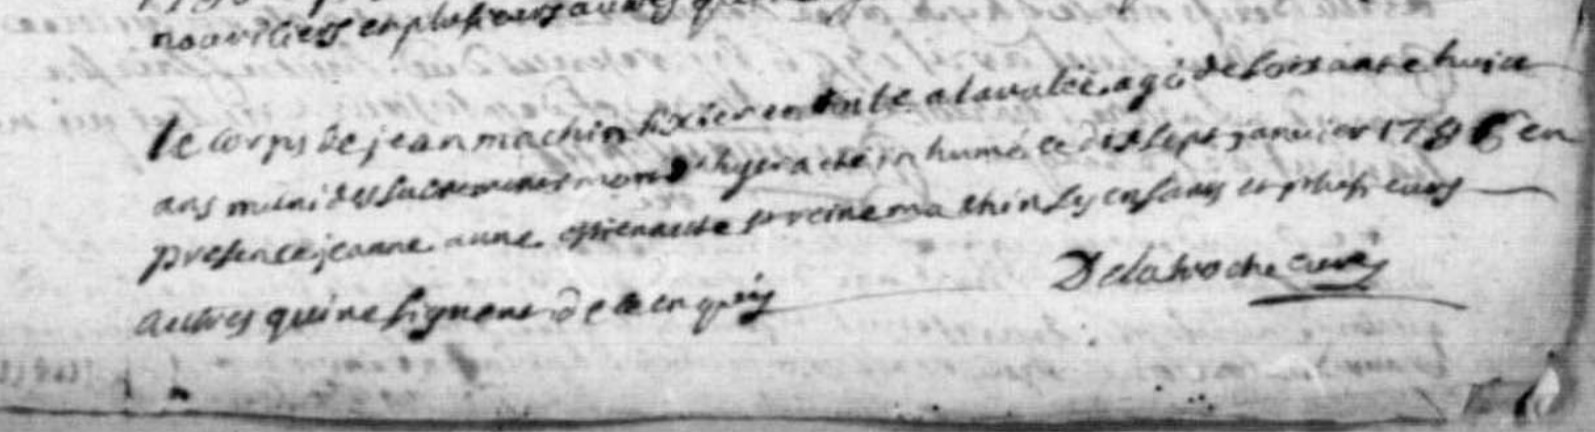 nourriciers et plusieurs autres
le corps de jean machin tixier en toile a lavalée agé de soixante huict
ans muni des sacrements mort d'hyer a eté inhumé ce dix sept janvier 1786 en
presence jeanne anne et reine machin ses enfans et plusieurs
autres qui ne signent de ce enquis
Delaroche curé